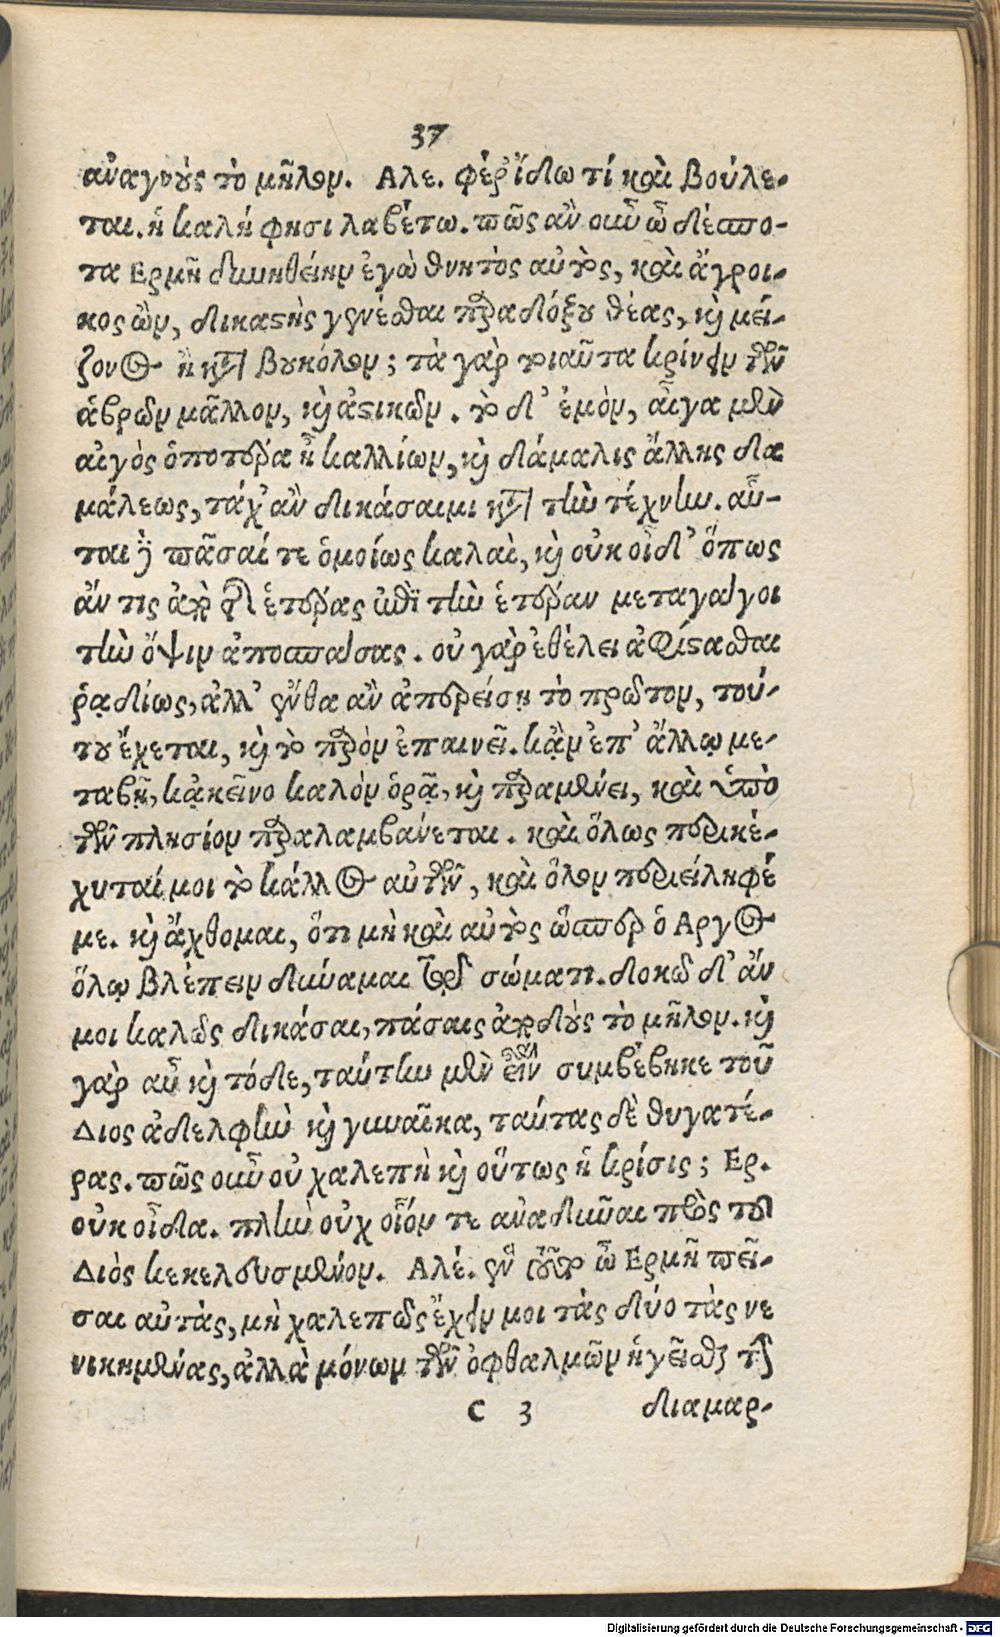 37
ἀναγνοὺς τὸ μῆλον. Αλε. φέρ' ἴδω τί καὶ βούλε-
ται. ἡ καλή φησι λαβέτω. πῶς ἂν οὖν ὦ δέσπο-
τα Ερμῆ δυνηθείην ἐγὼ θνητὸς αὐτὸς, καὶ ἄγροι-
κος ὢν, δικαστὴς γενέσθαι παραδόξου θέας, καὶ μεί-
ζονος ἢ κατὰ βουκόλον; τὰ γὰρ τοιαῦτα κρίνειν τῶν
ἁβρῶν μᾶλλον, καὶ ἀστικῶν. τὸ δ' ἐμὸν, αἶγα μὲν
αἰγὸς ὁποτέρα ἡ καλλίων, καὶ δάμαλις ἄλλης δα
μάλεως, τάχ' ἂν δικάσαιμι κατὰ τὴν τέχνην. αὗ-
ται δὲ πᾶσαί τε ὁμοίως καλαὶ, καὶ οὐκ οἶδ' ὅπως
ἄν τις ἀπὸ τῆς ἑτέρας ἐπὶ τὴν ἑτέραν μεταγάγοι
τὴν ὄψιν ἀποσπάσας. οὐ γὰρ ἐθέλει ἀφίστασθαι
ῥᾳδίως, ἀλλ' ἔνθα ἂν ἀπερείσῃ τὸ πρῶτον, τού-
του ἔχεται, καὶ τὸ παρὸν ἐπαινεῖ. κᾂν ἐπ' ἄλλῳ με-
ταβῇ, κᾀκεῖνο καλὸν ὁρᾷ, καὶ παραμένει, καὶ ὑπὸ
τῶν πλησίον παραλαμβάνεται. καὶ ὅλως περικέ-
χυταί μοι τὸ κάλλος αὐτῶν, καὶ ὅλον περιείληφέ
με. καὶ ἄχθομαι, ὅτι μὴ καὶ αὐτὸς ὥσπερ ὁ Αργος
ὅλῳ βλέπειν δύναμαι τῷ σώματι. δοκῶ δ' ἄν
μοι καλῶς δικάσαι, πάσαις ἀποδοὺς τὸ μῆλον. καὶ
γὰρ αὖ καὶ τόδε, ταύτην μὲν εἶναι συμβέβηκε τοῦ
Διος ἀδελφὴν καὶ γυναῖκα, ταύτας δὲ θυγατέ-
ρας. πῶς οὖν οὐ χαλεπὴ καὶ οὕτως ἡ κρίσις; Ερ.
οὐκ οἶδα. πλὴν οὐχ οἷόν τε ἀναδῦναι πρὸς τοῦ
Διὸς κεκελευσμένον. Αλέ. ἓν τοῦτο ὦ Ερμῆ πεῖ-
σαι αὐτὰς, μὴ χαλεπῶς ἔχειν μοι τὰς δύο τὰς νε
νικημένας, ἀλλὰ μόνων τῶν ὀφθαλμῶν ἡγεῖσθαι τὴν
C 3 διαμαρ-
Digitalisierung gefördert durch die Deutsche Forschungsgemeinschaft - DFG